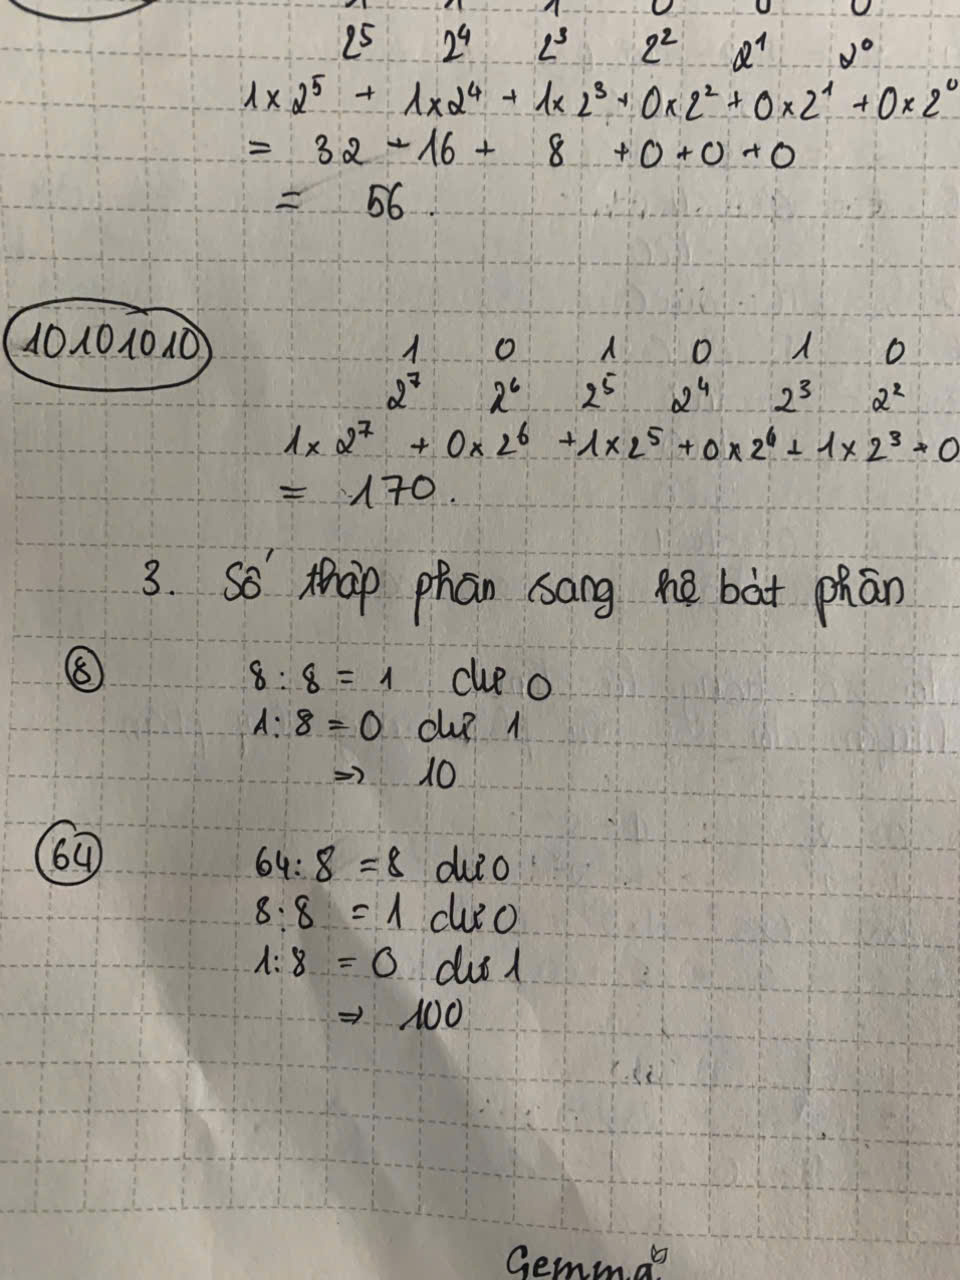 2⁵ 2⁴ 2³ 2² 2¹ 2⁰
1 × 2⁵ + 1 × 2⁴ + 1 × 2³ + 0 × 2² + 0 × 2¹ + 0 × 2⁰
= 32 + 16 + 8 + 0 + 0 + 0
= 56.
10101010 1 0 1 0 1 0
2⁷ 2⁶ 2⁵ 2⁴ 2³ 2²
1 × 2⁷ + 0 × 2⁶ + 1 × 2⁵ + 0 × 2⁶ + 1 × 2³ + 0
= 170.
3. Số thập phân sang hệ bát phân
8 8 : 8 = 1 dư 0
1 : 8 = 0 dư 1
⇒ 10
64 64 : 8 = 8 dư 0
8 : 8 = 1 dư 0
1 : 8 = 0 dư 1
⇒ 100
Gemma